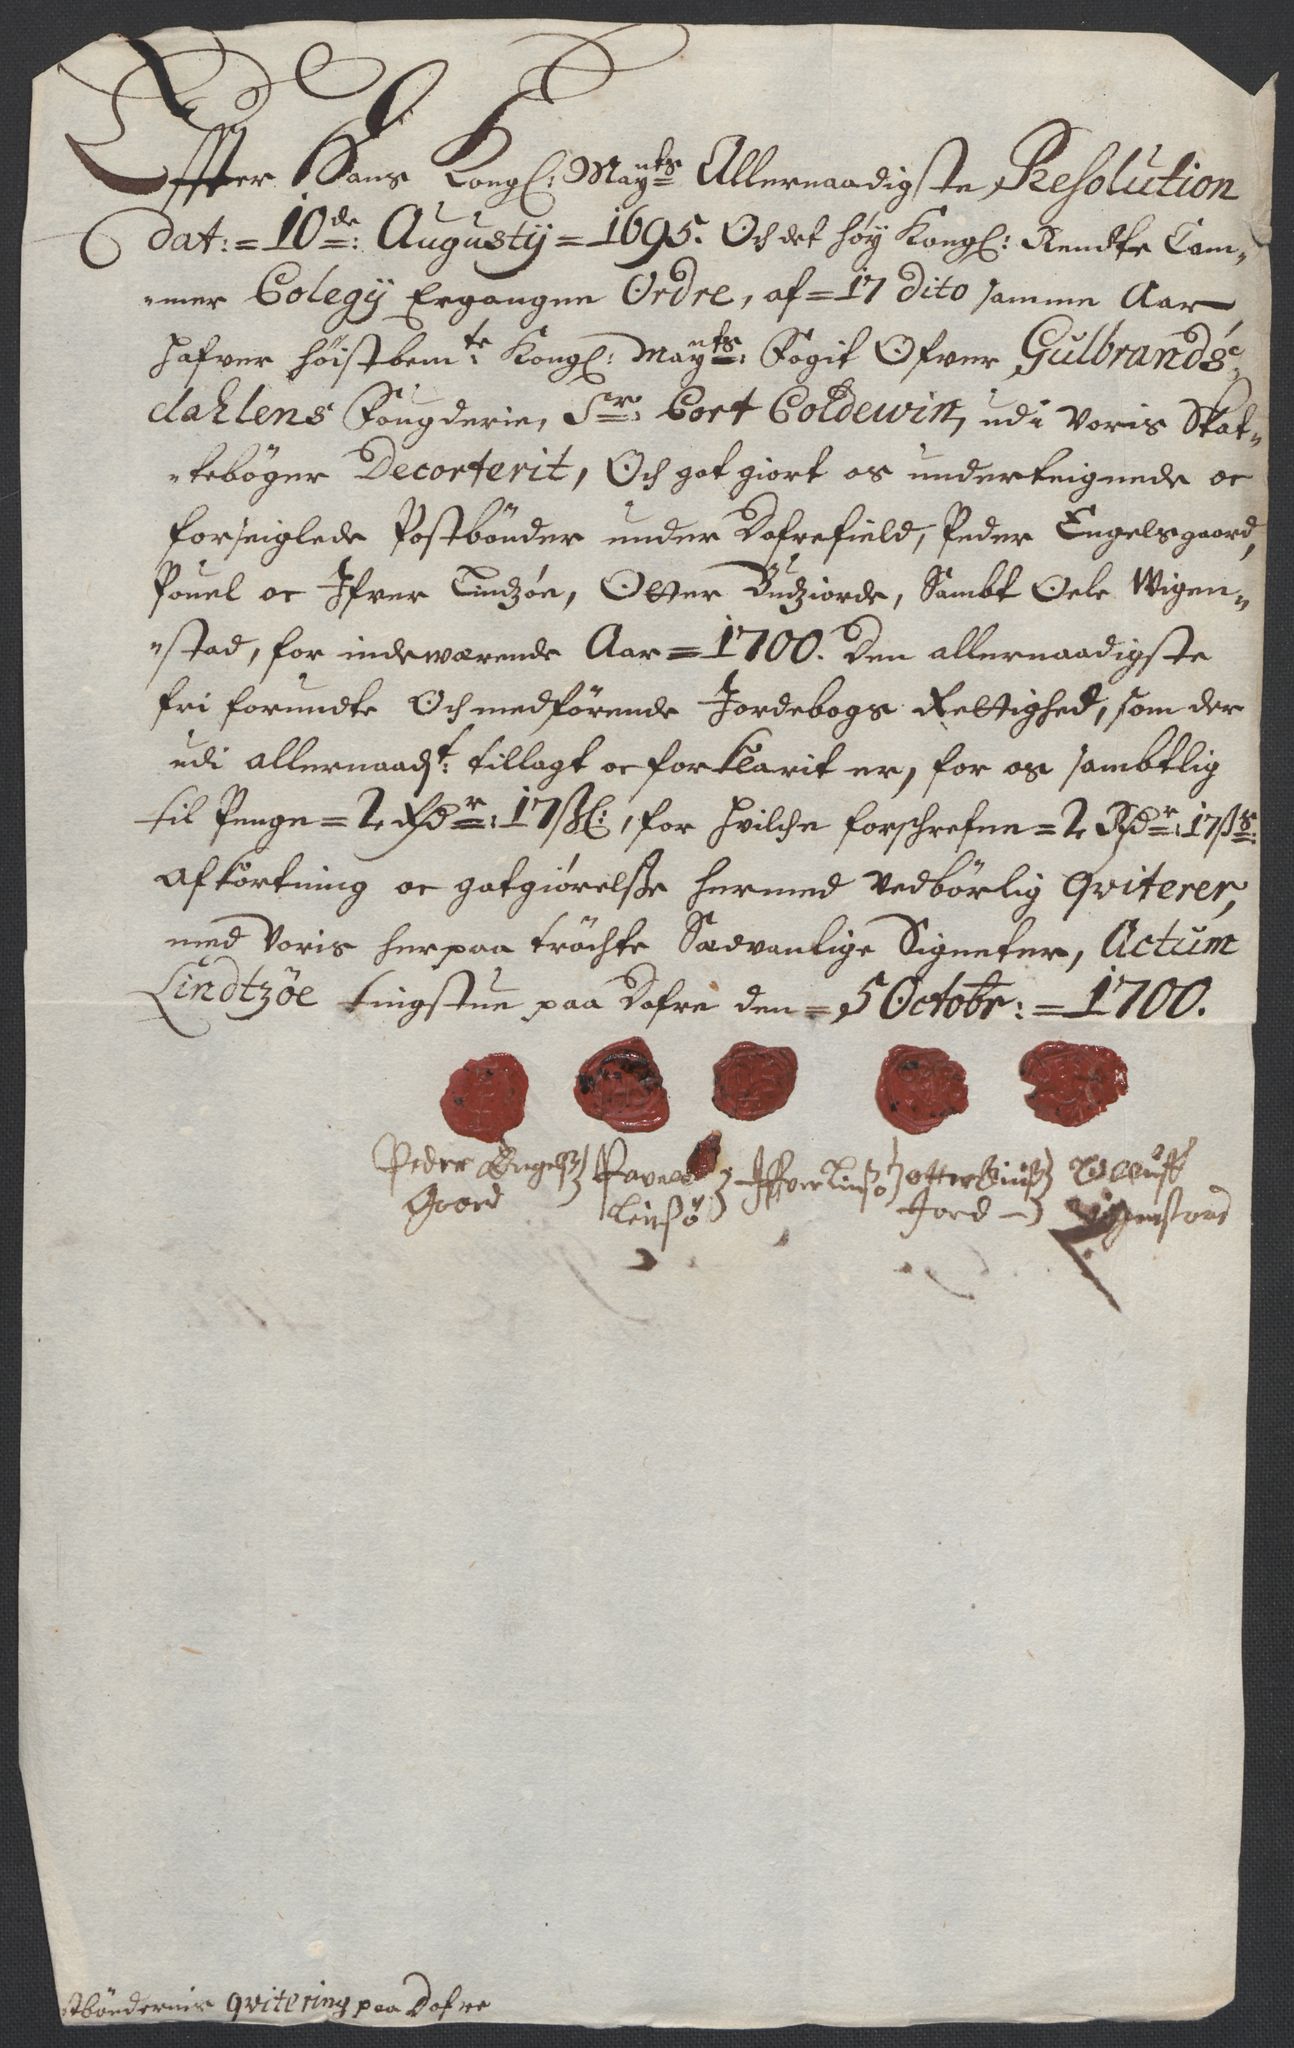 Effter Hans Kongl: Mayts Allernaadigste Resolution
dat: = 10de: Augustij = 1695. Och det höy Kongl: Rendte Cam„
„mer Colegij Ergangne Ordre, af = 17 dito samme Aar,
hafver höistbemte: Kongl: Mayts: Fogit Ofver Gulbrands„
dahlens Fougderie, Sr: Cort Coldewin, udi voris Skat„
„tebøger Decorterit, Och got giort os underteignede oc
forseiglede Postbönder under Dofrefield, Peder Engelsgaard,
Pouel oc Ifver Lindzöe, Otter Budziorde, Sambt Oele Wigen„
„stad, for indewærende Aar = 1700. Den allernaadigste
fri forundte Och medförende Jordebogs Rettighed, som der
udi allernaadst: tillagt oc forklarit er, for os sambtlig
til Penge = 2 Rdr: 17 ßl:, for hvilche forschrefne = 2 Rdr: 17 ßs:
afkortning oc gotgiørelsße hermed vedbörlig qviterer,
med Voris herpaa tröchte Sædvanlige Signeter, Actum
Lindtzöe tingstue paa Dofre den = 5 Octobr: = 1700.
Peder Engelß Pavel Iffver Linßö otter Budß Olluff
Goord Linßö Jord Vigenstad
stböndernis qvitering paa Dofre